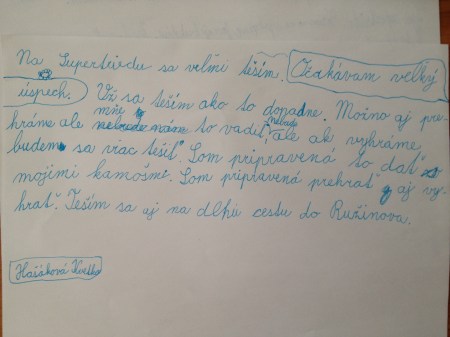 Na Supertriedu sa veľmi teším. Očakávam veľký
úspech. Už sa teším ako to dopadne. Možno aj pre-
hráme ale mňe nebude to vadiť, ale ak vyhráme
budem sa viac tešiť. Som pripravená to dať s
mojimi kamošmi. Som pripravená prehrať aj vy-
hrať. Teším sa aj na dlhu cestu do Ružinova.